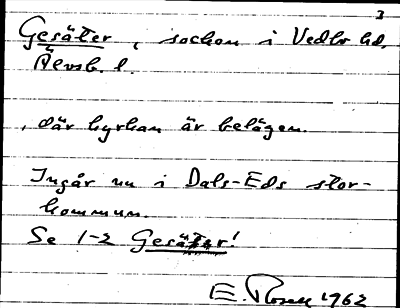 3
Gesäter, socken i Vedbo hd,
Älvsb. l.
, där kyrkan är belägen.
Ingår nu i Dals-Eds stor-
kommun.
Se 1-2 Gesäter!
E. Rosell 1962